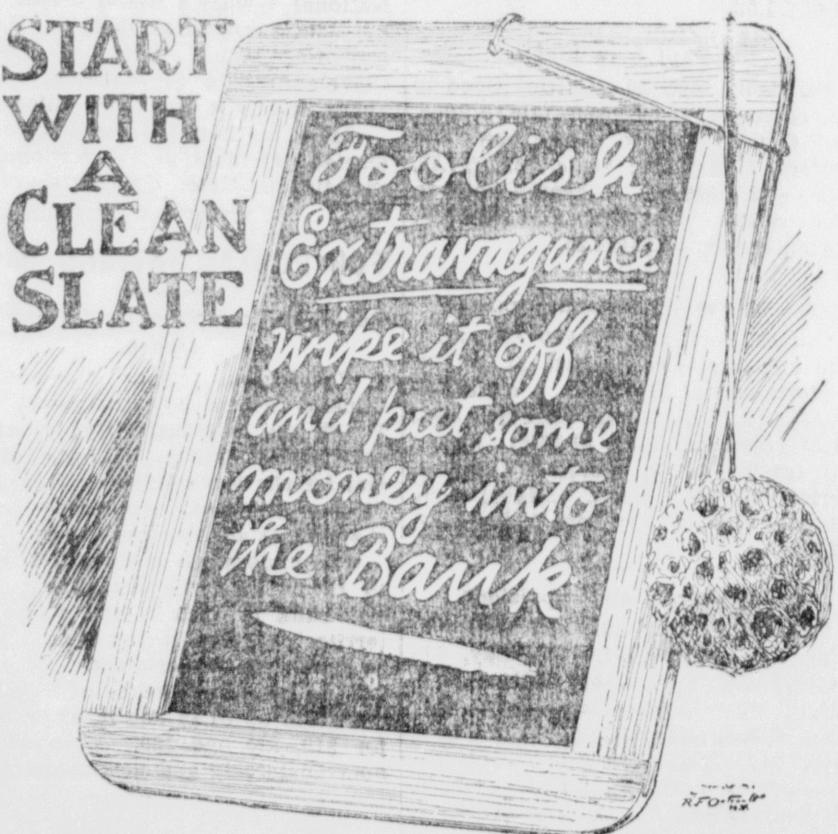 START
WITH
A
CLEAN
SLATE
Foolish
Extravagance
wipe it off
and put some
money into
the Bank